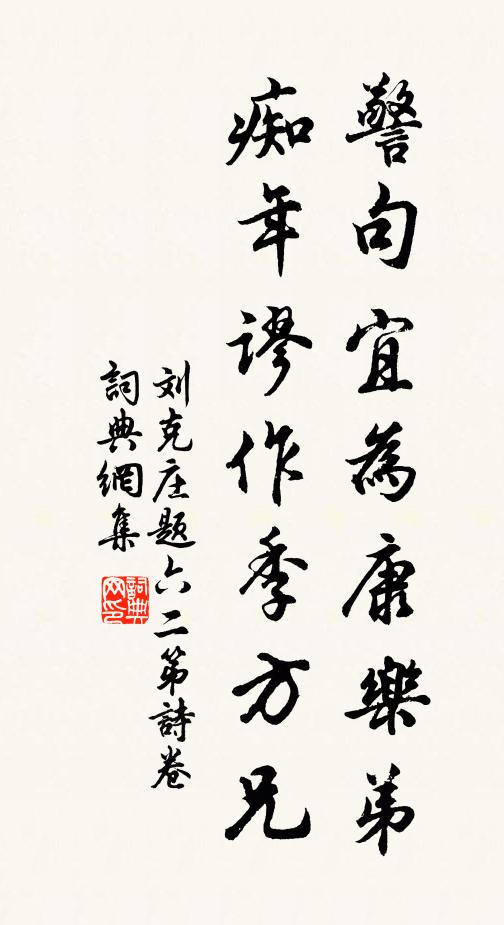 警句宜為康樂弟
痴年謬作季方兄
刘克庄题六二第詩卷
詞典網集
詞典网印